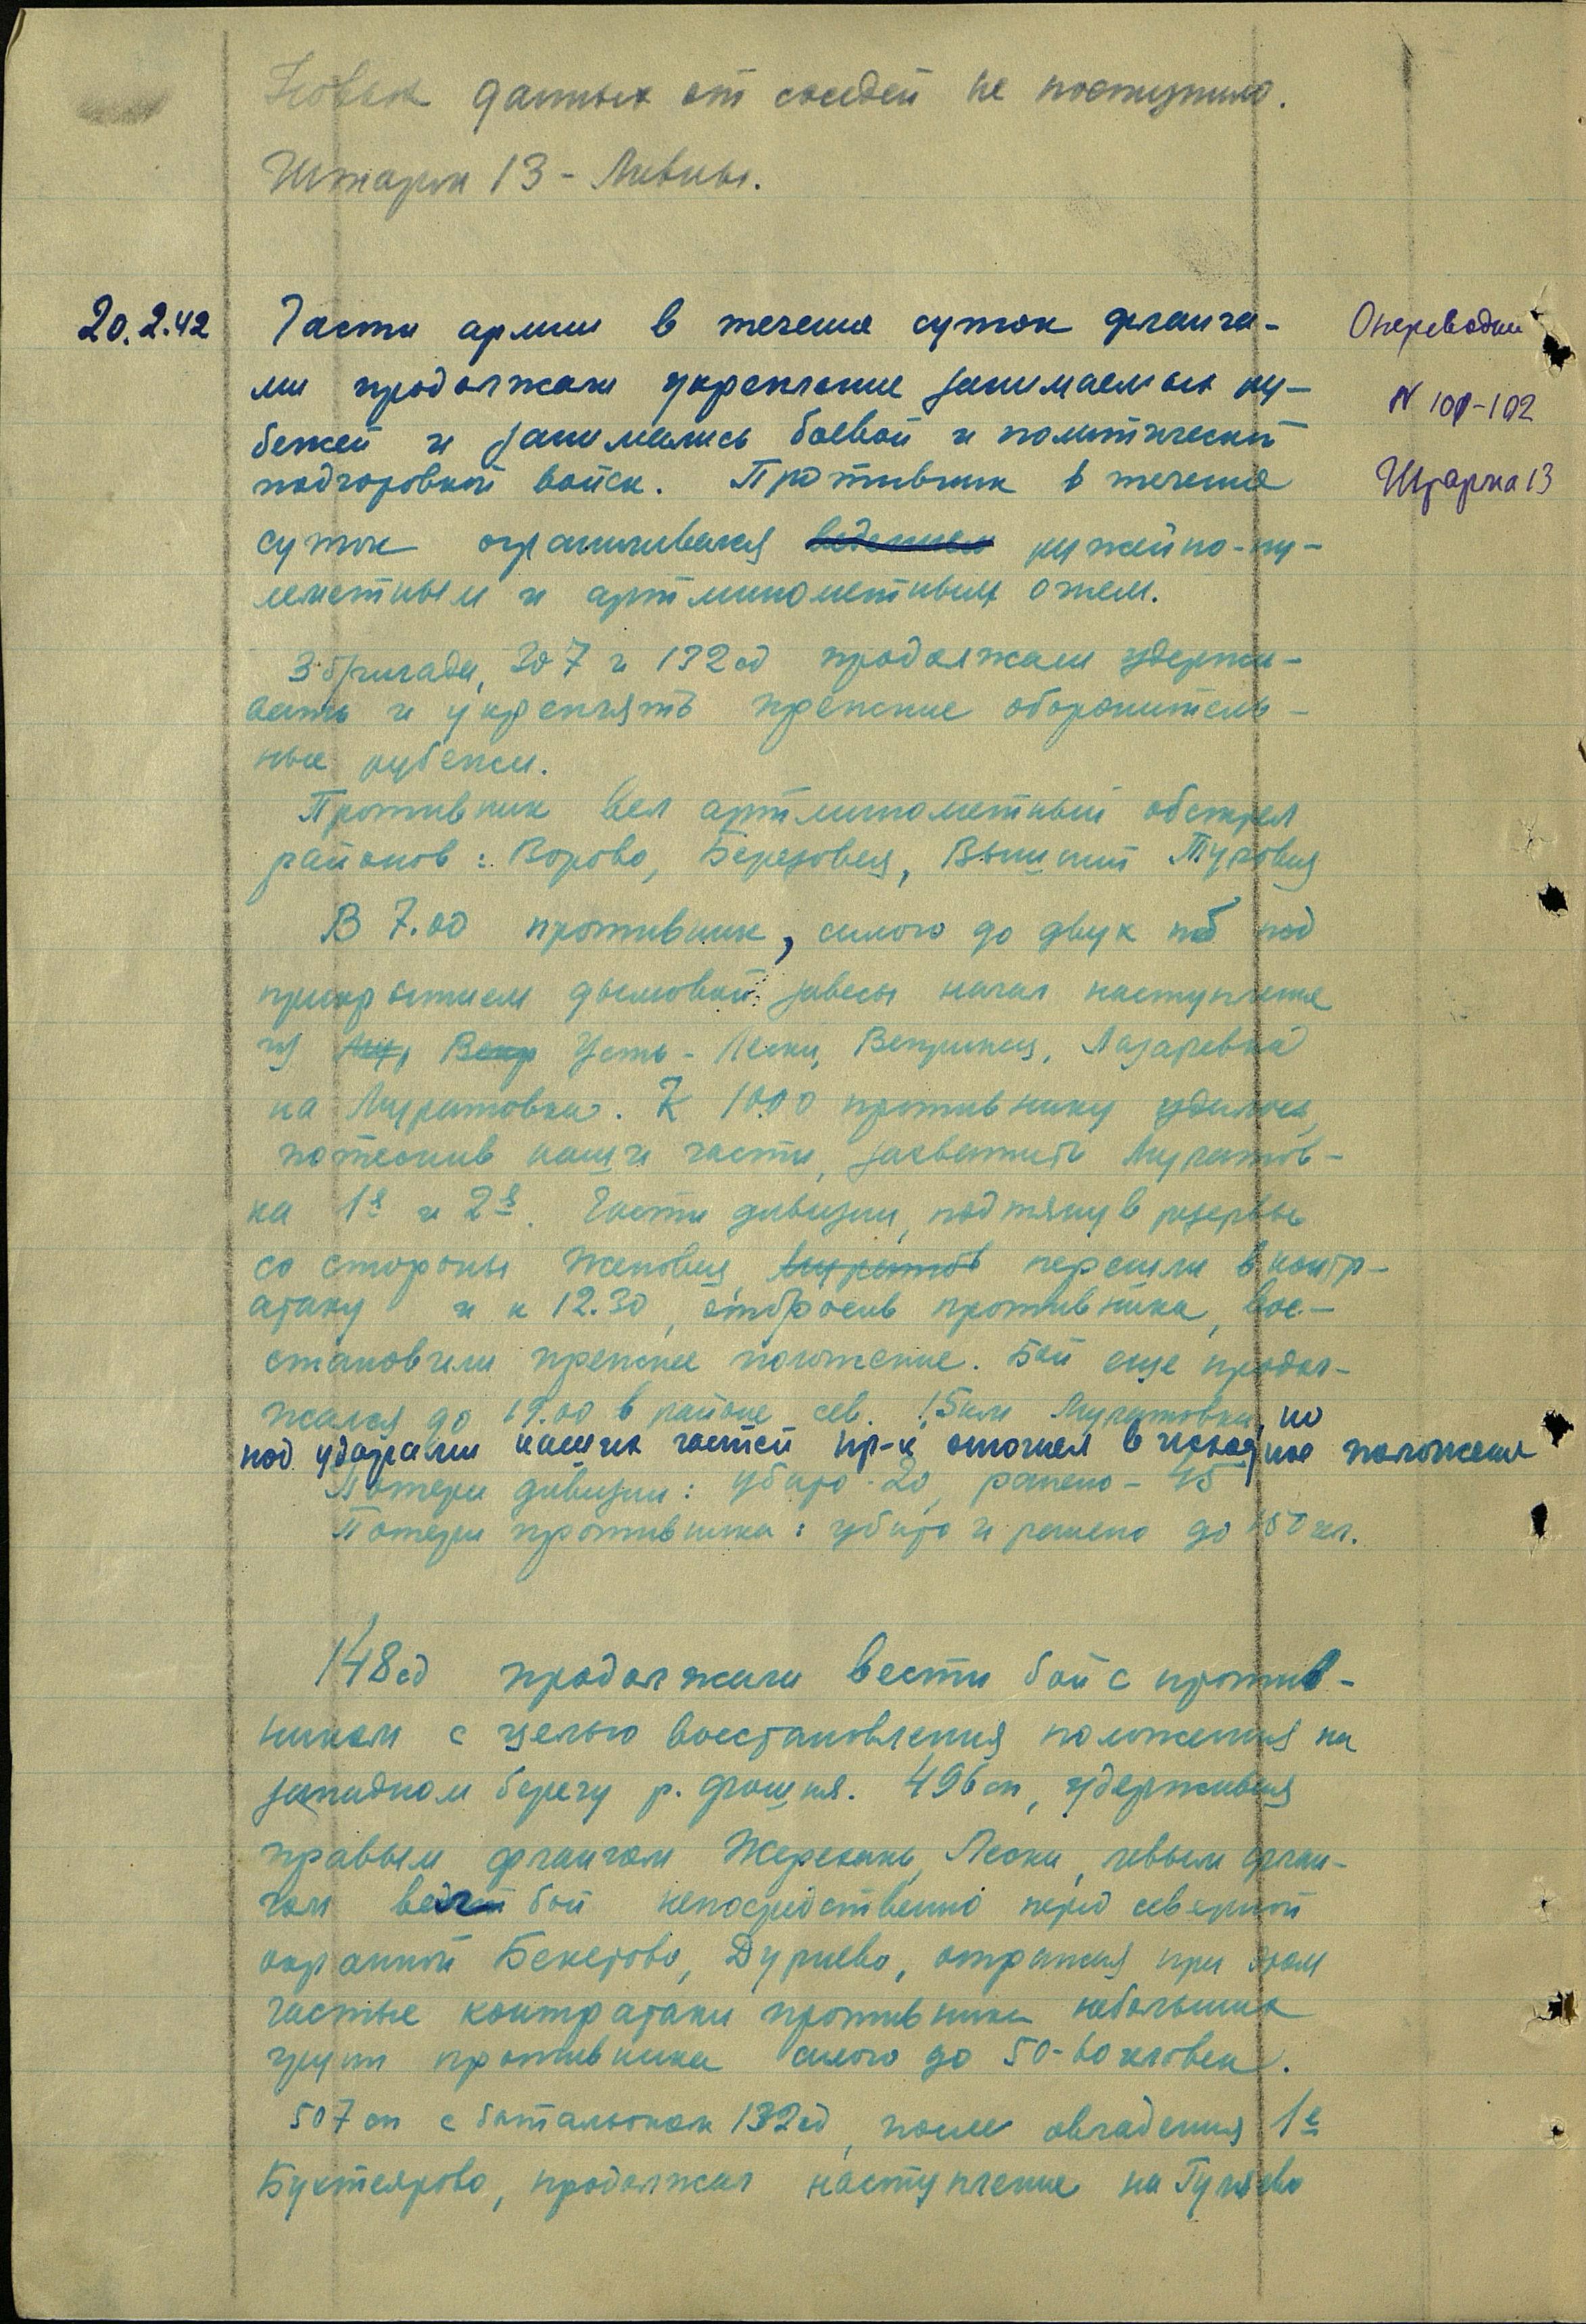 Новых данных от соседей не поступило.
Штарм 13 - Ливны.
20.2.42
Части армии в течение суток фланга-
ми продолжали укрепление занимаемых ру-
бежей и занимались боевой и политической
подготовкой войск. Противник в течение
суток ограничивался ружейно-пу-
леметным и артминометным огнем.
Опереводки
N 101-102
Штарма 13
3 бригада, 307 и 132 сд продолжали удержи-
вать и укреплять прежние оборонитель-
ные рубежи.
Противник вел артминометный обстрел
районов: Ворово, Березовец, Вышний Туровец
В 7.00 противник, силою до двух пб под
прикрытием дымовой завесы начал наступление
из Усть-Лески, Вепринец, Лазаревка
на Муратовка. К 10.00 противнику удалось,
потеснив наши части, захватить Муратов-
ка 1я и 2я. Части дивизии, подтянув резервы
со стороны перешли в контр-
атаку и к 12.30, отбросив противника, вос-
становили прежнее положение. Бой еще продол-
жался до 19.00 в районе сев. 1,5 км Муратовка, но
под ударами наших частей пр-к отошел в исходное положение
Потери дивизии: убито - 20, ранено - 45
Потери противника: убито и ранено до 150 чел.
148 сд продолжала вести бой с против-
ником с целью восстановления положения на
западном берегу р. Фошня. 496 сп, удерживая
правым флангом Жерехань, Лески, левым флан-
гом ведет бой непосредственно перед северной
окраиной Бекетово, Дурнево, отражая при этом
частые контратаки противника небольших
групп противника силою до 50-60 человек.
507 сп с батальоном 132 сд, после овладения 1е
Бухтеярово, продолжал наступление на Гуляево